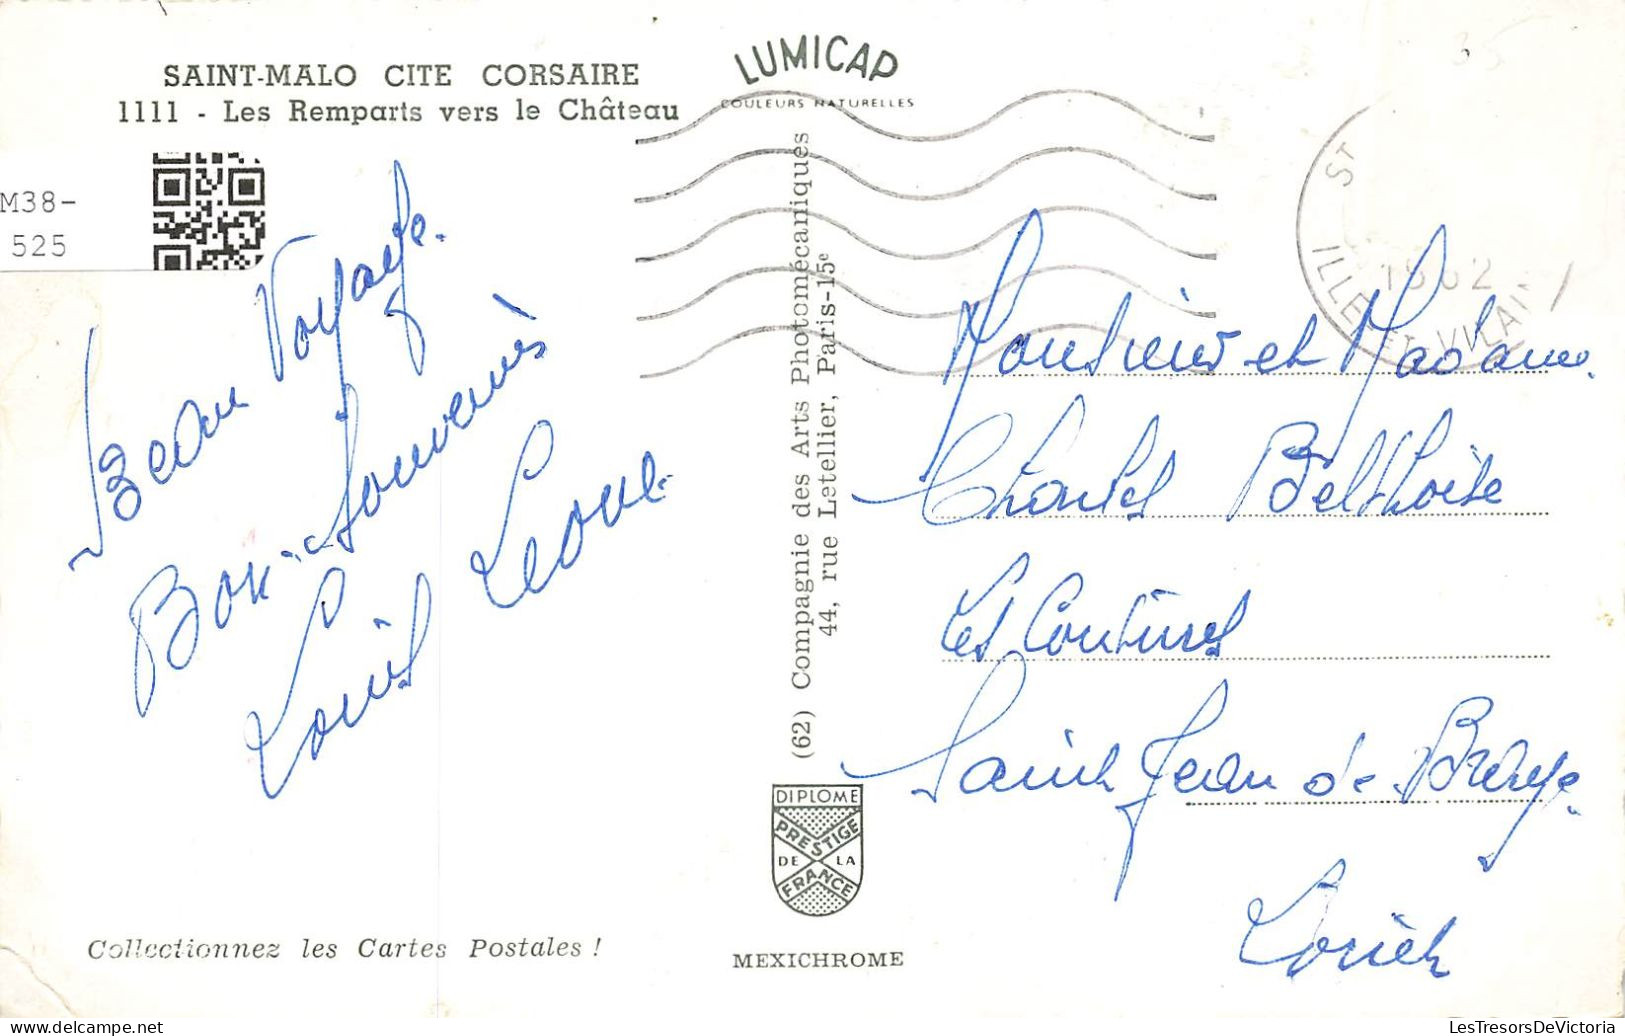 SAINT-MALO CITE CORSAIRE
1111 - Les Remparts vers le Château
M38-
525
Beau Voyage.
Bon Souvenirs
Louis Léone
Collectionnez les Cartes Postales !
LUMICAP
COULEURS NATURELLES
(62) Compagnie des Arts Photomécaniques
44, rue Letellier, Paris-15e
DIPLOME
PRESTIGE
DE LA
FRANCE
MEXICHROME
ST
ILLE ET VILAIN
Monsieur et Madame
Charles
Les Coutures
Saint Jean de Braye
Loiret
LesTresorsDeVictoria
www.delcampe.net